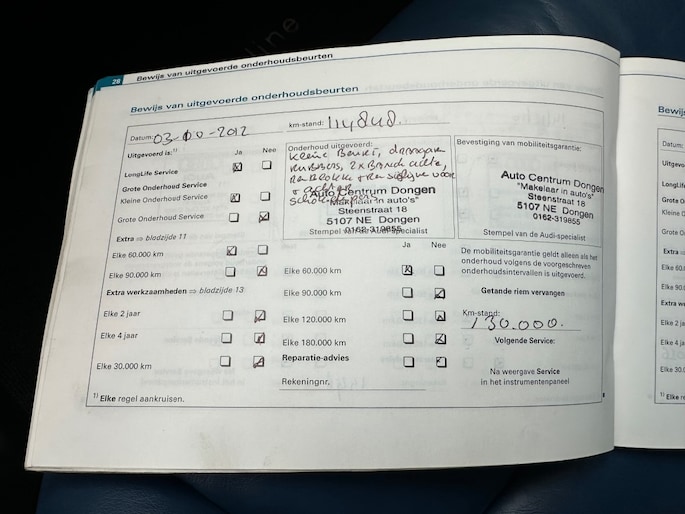 28 Bewijs van uitgevoerde onderhoudsbeurten
Bewijs van uitgevoerde onderhoudsbeurten
Datum: 2012
km-stand: 114848.
Uitgevoerd is:¹⁾ Ja Nee
LongLife Service
Grote Onderhoud Service
Kleine Onderhoud Service
Grote Onderhoud Service
Extra ⇒ bladzijde 11
Elke 60.000 km
Elke 90.000 km
Extra werkzaamheden ⇒ bladzijde 13
Elke 2 jaar
Elke 4 jaar
Elke 30.000 km
¹⁾ Elke regel aankruisen.
Onderhoud uitgevoerd:
Kleine Beurt,
+ achter
Auto Centrum Dongen
"Makelaar in auto's"
Steenstraat 18
5107 NE Dongen
0162-319855
Stempel van de Audi-specialist
Ja Nee
Elke 60.000 km
Elke 90.000 km
Elke 120.000 km
Elke 180.000 km
Reparatie-advies
Rekeningnr.
Bevestiging van mobiliteitsgarantie:
Auto Centrum Dongen
"Makelaar in auto's"
Steenstraat 18
5107 NE Dongen
0162-319855
Stempel van de Audi-specialist
De mobiliteitsgarantie geldt alleen als het
onderhoud volgens de voorgeschreven
onderhoudsintervallen is uitgevoerd.
Getande riem vervangen
Km-stand:
130.000.
Volgende Service:
Na weergave Service
in het instrumentenpaneel
Bewij
Datum:
Uitgevoe
LongLife
Grote O
Kleine O
Grote O
Extra
Elke 60.
Elke 90.
Extra we
Elke 2 ja
Elke 4 ja
Elke 30.
¹⁾ Elke r